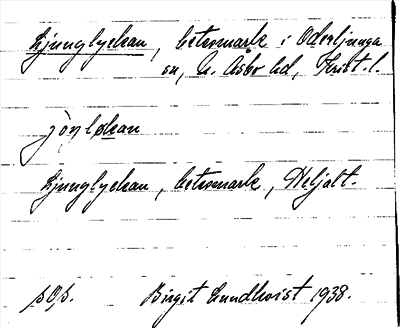 Ljunglyckan, betesmark i Oderljunga
sn, N. Åsbo hd, Krist. l.
Ljunglyckan, betesmark, Heljalt.
Birgit Lundkvist 1938.